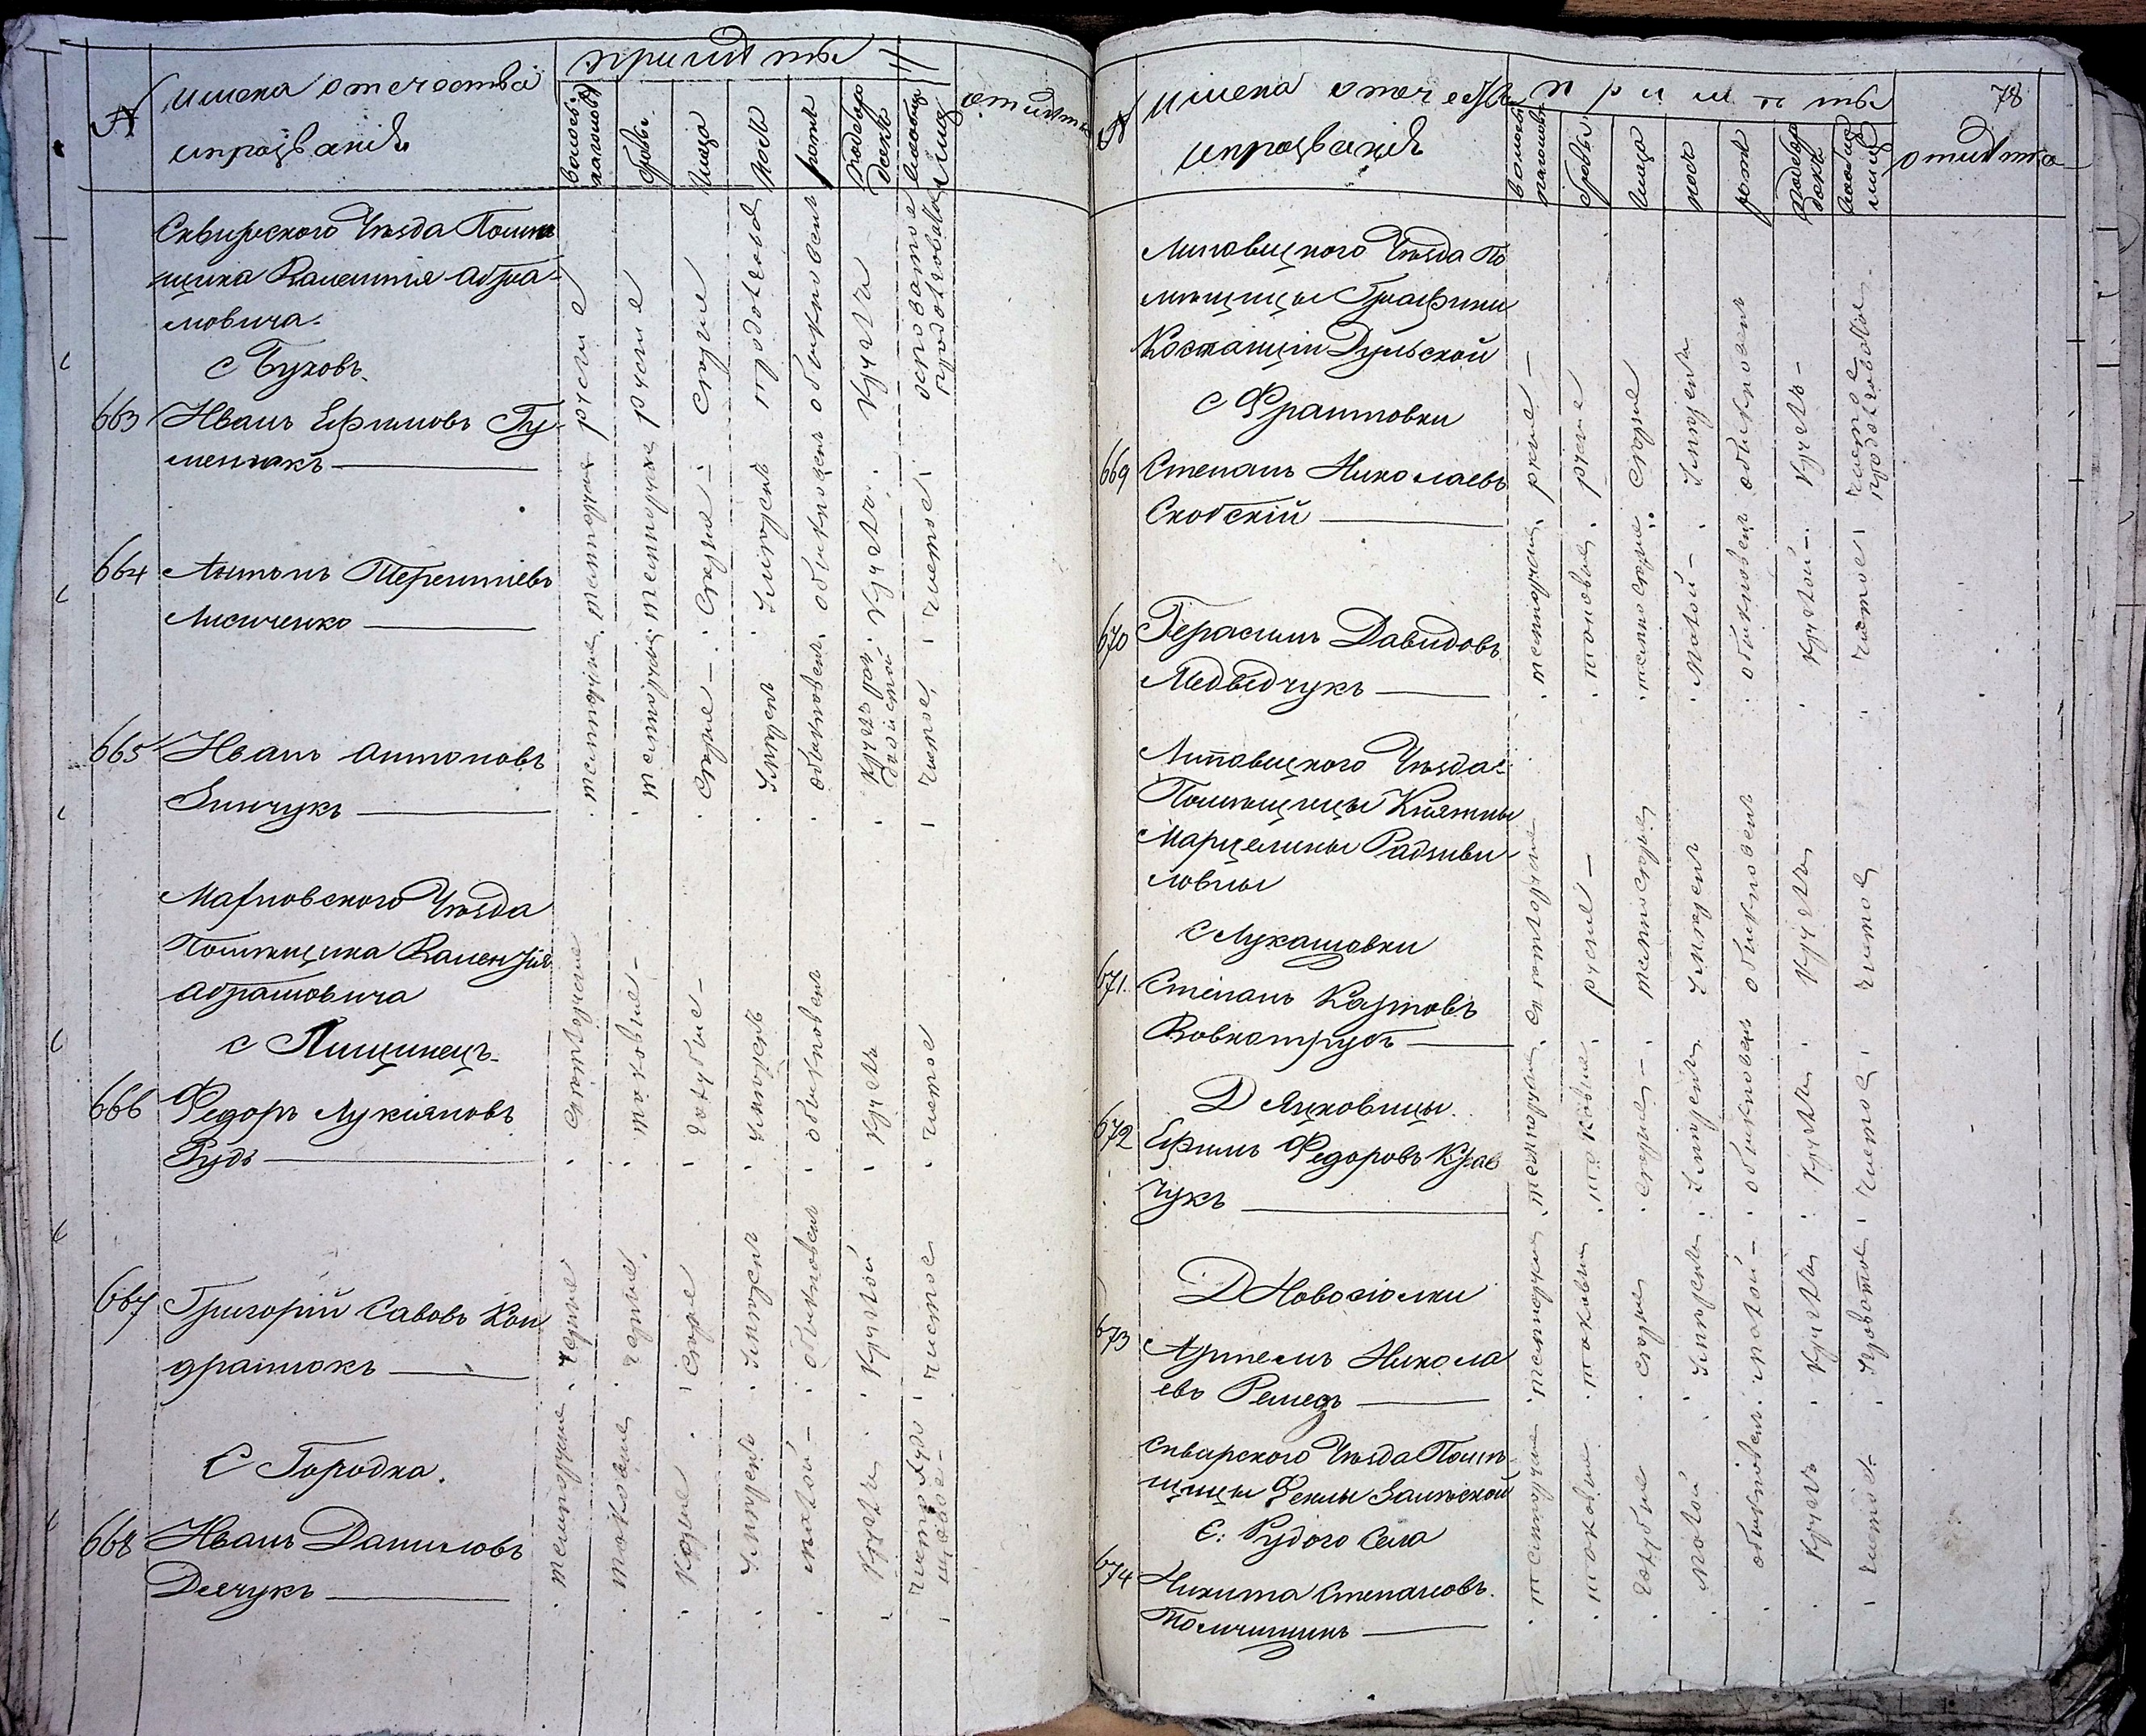 №
имена отечества
и прозвания
примѣты
волосы на голове
брови
глаза
носъ
ротъ
подбородокъ
особенно лица
отметка
Сквирского Уѣзда Помѣ-
щика Валентія Абра-
мовича.
с Буховъ.
663 Иванъ Ефимовъ Гу-
менюкъ
русые
русые
серые
продолговатой
обыкновен
кругла
рябоватое продолговатое
664 Антонъ Терентіевъ
Лисиченко
темнорусые
темнорусые
серые
умерен
обыкновен
кругла
чистое
665 Иванъ Антоновъ
Зинчукъ
темнорусые
темнорусые
серые
умерен
обыкновен
чистое
Махновского Уѣзда
Помѣщика Валентія
Абрамовича
с Пищинецъ
666 Федоръ Лукіяновъ
Рудь
светлорусые
таковые
голубые
умерен
обыкновен
кругла
чистое
667 Григорій Савовъ Кон
дратюкъ
черные
черные
серые
умерен
обыкновен
круглой
чистое
С Городка.
668 Иванъ Даниловъ
Дячукъ
темнорусые
таковые
карие
умерен
малой
кругла
78
№
имена отечест
и прозваніе
примѣты
волосы на голове
брови
глаза
носъ
ротъ
подборо докъ
особен лица
отмѣтка
Липовецкого Уѣзда По
мѣщицы Графини
Костанціи Дульской
С Франтовки
669 Степанъ Николаевъ
Скобскій
русые
русые
серые
умерен
обыкновен
кругла
чистое продолговатое
670 Герасимъ Давидовъ
Медведчукъ
темнорусые
таковые
темносерые
малой
обыкновен
круглой
чистое
Липовецкого Уѣзда
Помѣщицы Княжны
Марцелины Радзиви-
ловны
С Лукашовки
671. Степанъ Карповъ
Вовкотрубъ
светлорусые
русые
темносерые
умерен
обыкновен
кругла
чистое
Д Яцковицы.
672 Ефимъ Федоровъ Крав
чукъ
темнорусые
таковые
серые
умерен
обыкновен
кругла
чистое
Д Новосіолки
673 Артемъ Никола
евъ Ремезъ
темнорусые
таковые
серые
умерен
малой
кругла
Сквирского Уѣзда Помѣ-
щицы Феклы Залѣской
С: Рудого Села
674 Никита Степановъ.
Толчишинъ
темнорусые
таковые
голубые
малой
обыкновен
кругла
чистое